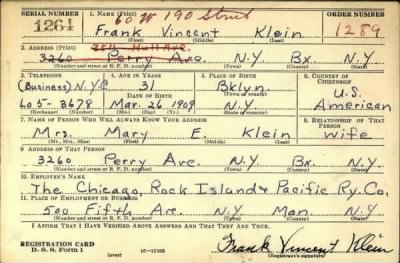 SERIAL NUMBER 1. NAME (Print) ORDER NUMBER
1264 60 W 190 Street 1289
Frank Vincent Klein
(First) (Middle) (Last)
2. ADDRESS (Print) 284 Hull Ave.
3260 Perry Ave. N.Y. Bx. N.Y.
(Number and street or R. F. D. number) (Town) (County) (State)
3. TELEPHONE 4. AGE IN YEARS 5. PLACE OF BIRTH 6. COUNTRY OF CITIZENSHIP
(Business) N.Y.C 31 Bklyn. U.S.
DATE OF BIRTH (Town or county)
Lo 5-3678 Mar. 26 1909 N.Y. American
(Exchange) (Number) (Mo.) (Day) (Yr.) (State or country)
7. NAME OF PERSON WHO WILL ALWAYS KNOW YOUR ADDRESS 8. RELATIONSHIP OF THAT PERSON
Mrs. Mary E. Klein Wife
(Mr., Mrs., Miss) (First) (Middle) (Last)
9. ADDRESS OF THAT PERSON
3260 Perry Ave. N.Y. Bx. N.Y.
(Number and street or R. F. D. number) (Town) (County) (State)
10. EMPLOYER'S NAME
The Chicago, Rock Island & Pacific Ry. Co.
11. PLACE OF EMPLOYMENT OR BUSINESS
500 Fifth Ave. N.Y. Man. N.Y.
(Number and street or R. F. D. number) (Town) (County) (State)
I AFFIRM THAT I HAVE VERIFIED ABOVE ANSWERS AND THAT THEY ARE TRUE.
REGISTRATION CARD
D. S. S. FORM 1 (over) 16-17105 Frank Vincent Klein
(Registrant's signature)